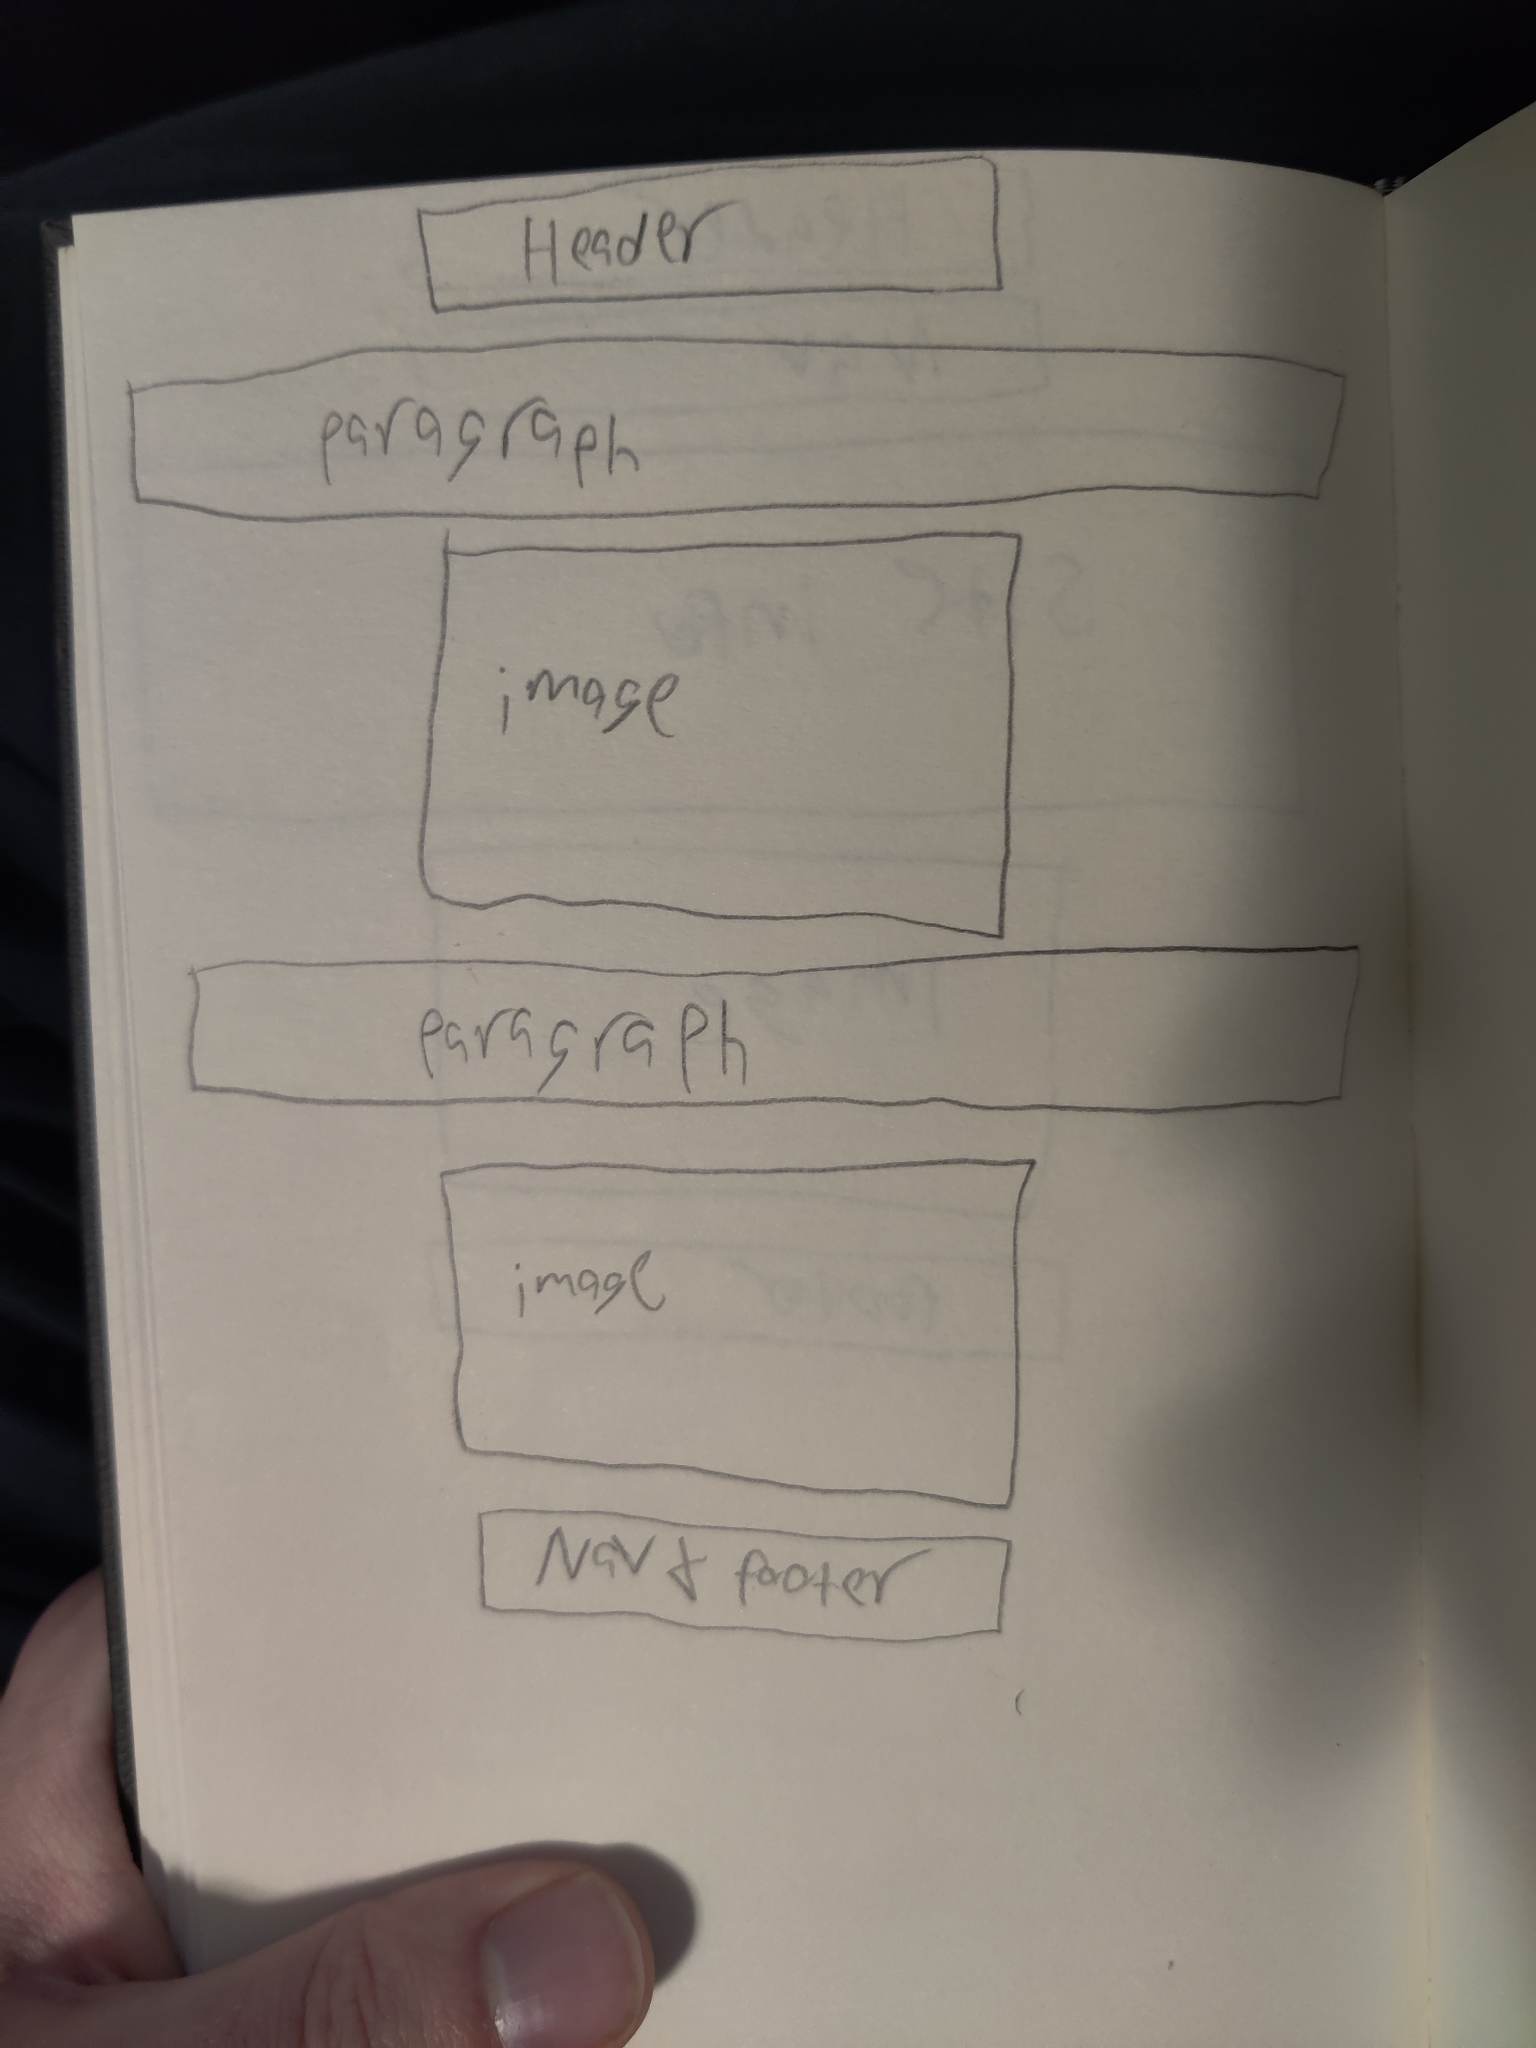 Header
paragraph
image
paragraph
image
Nav & footer